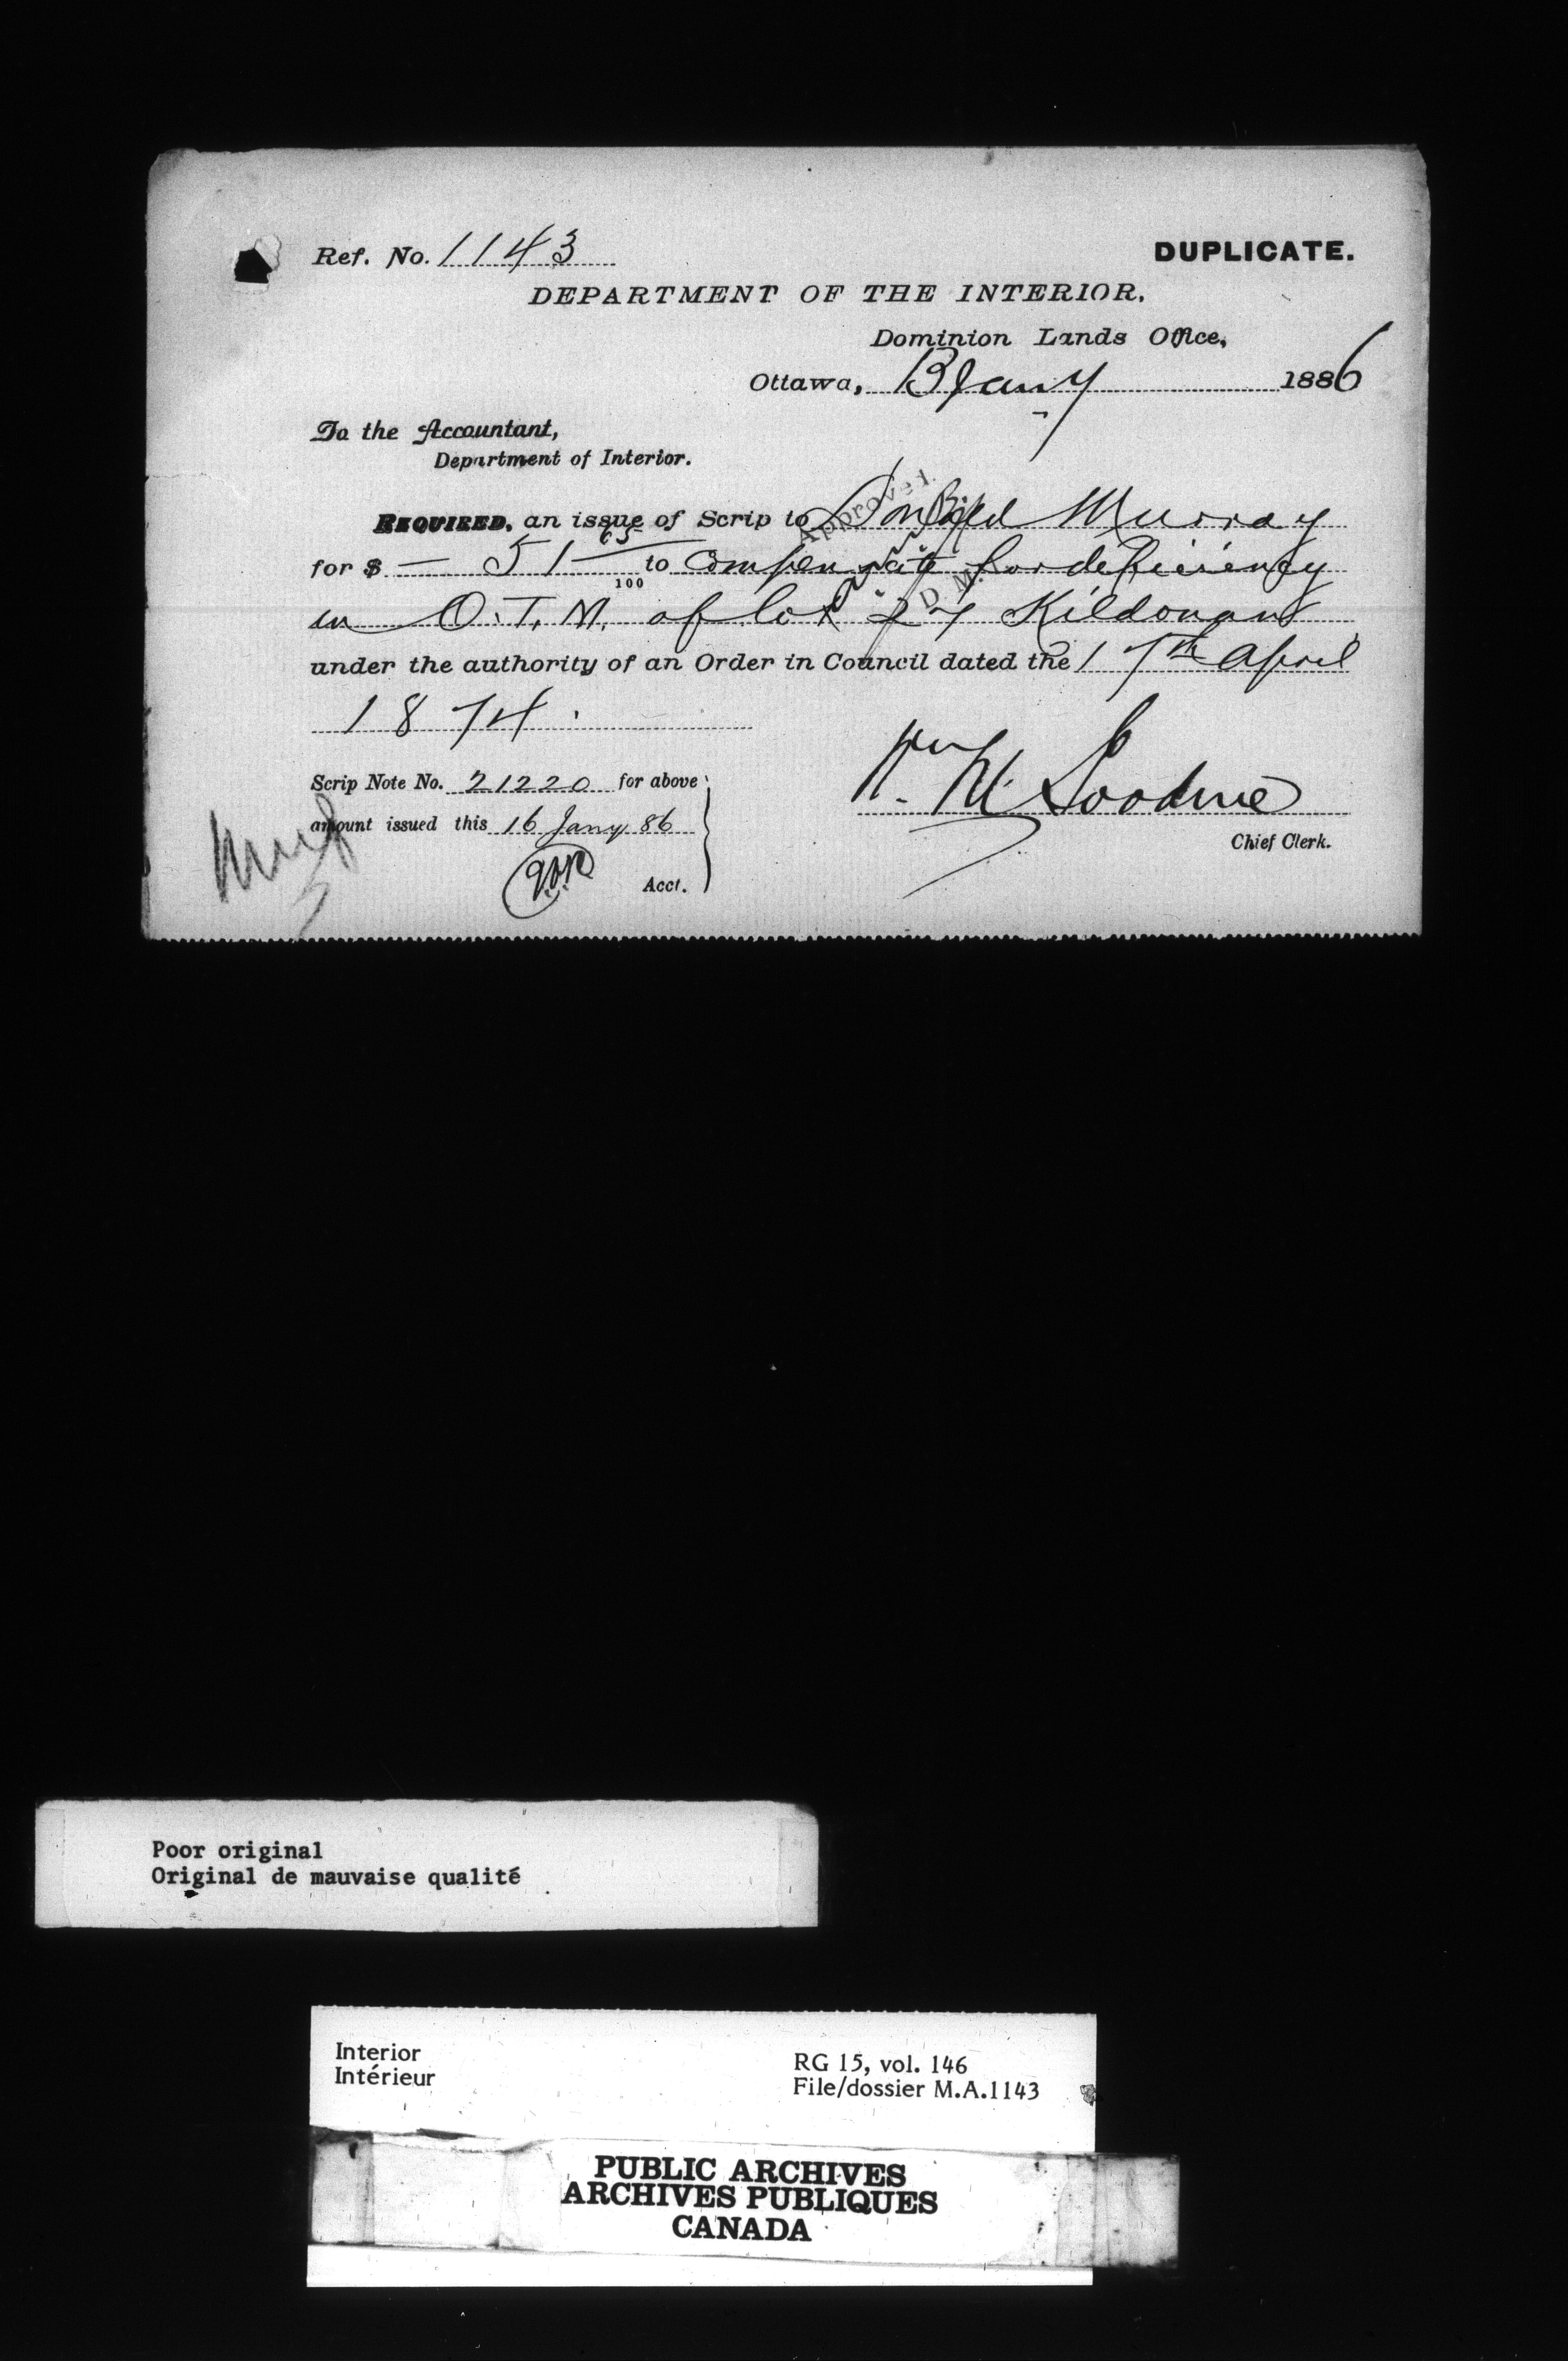 Ref. No. 1143
DUPLICATE.
DEPARTMENT OF THE INTERIOR.
Dominion Lands Office,
Ottawa, 13 Jany 1886
To the Accountant,
Department of Interior.
Approved.
REQUIRED, an issue of Scrip to Donald Murray
for $ — 51 65/100 to Compensate for deficiency
in O.T.M. of lot 27 Kildonan
under the authority of an Order in Council dated the 17th April
1874.
Scrip Note No. 21220 for above
amount issued this 16 Jany 86
Acct.
Wm M. Goodeve
Chief Clerk.
Poor original
Original de mauvaise qualité
Interior
Intérieur
RG 15, vol. 146
File/dossier M.A.1143
PUBLIC ARCHIVES
ARCHIVES PUBLIQUES
CANADA